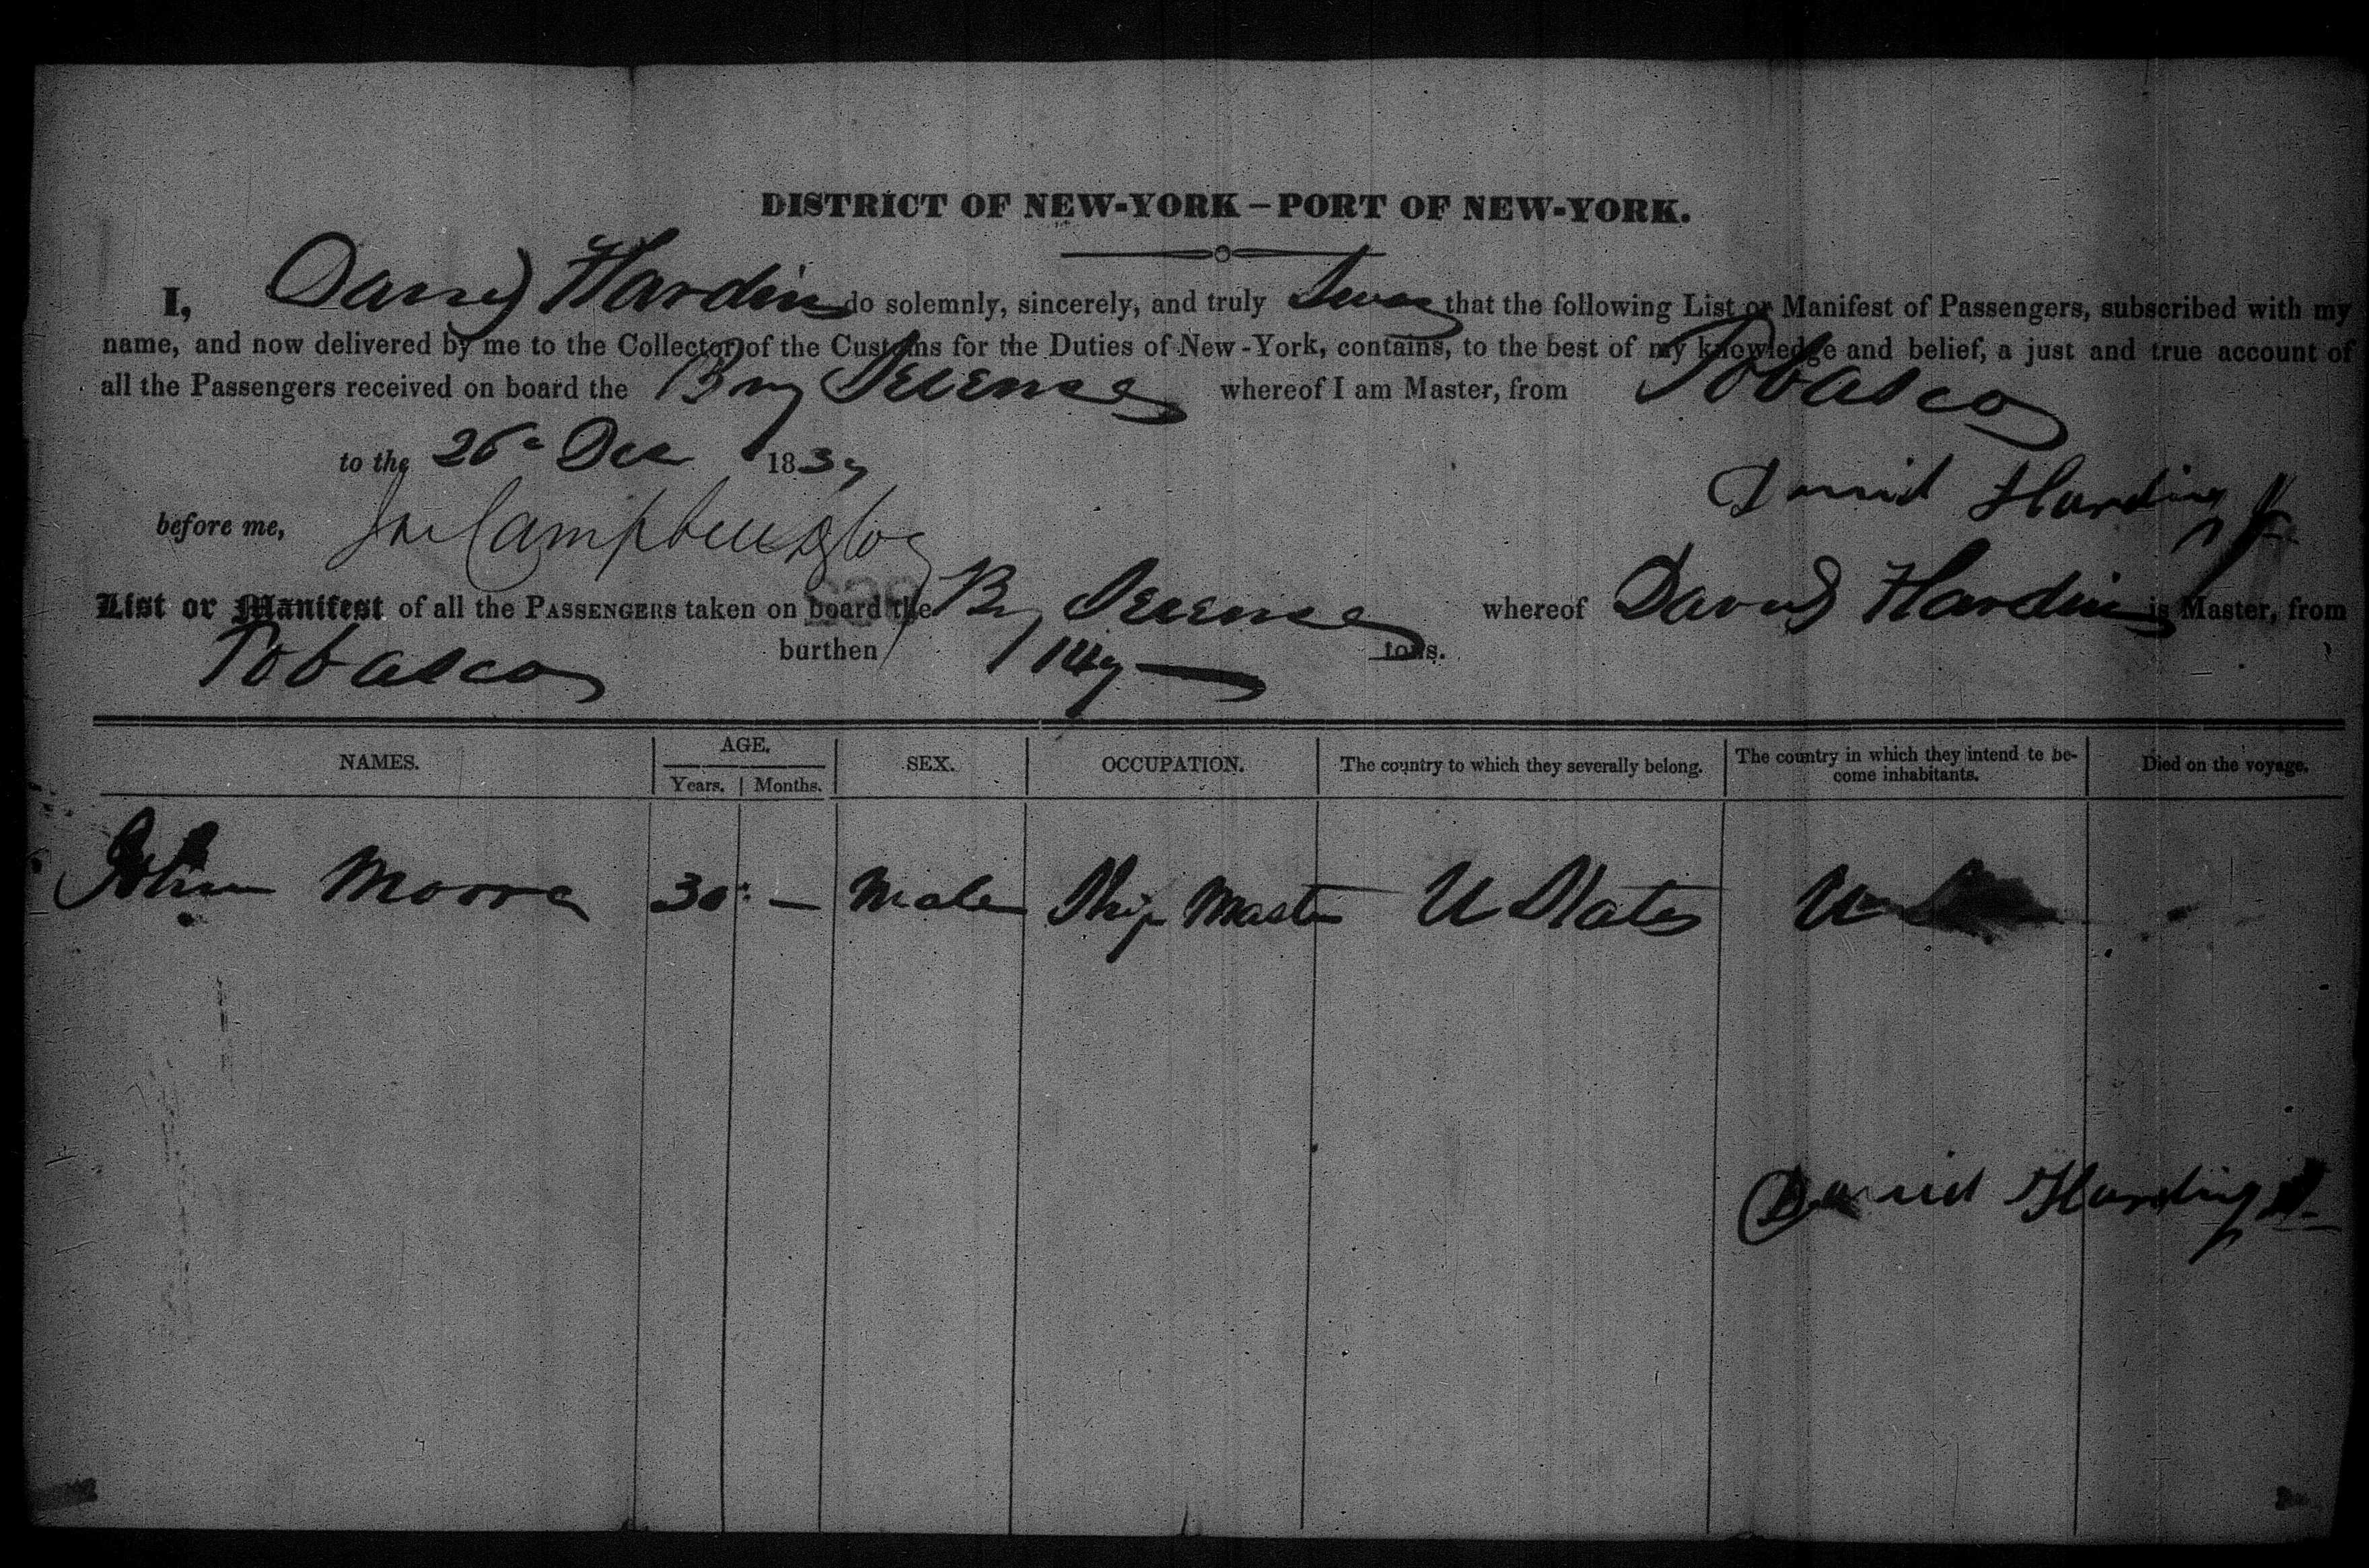 DISTRICT OF NEW-YORK – PORT OF NEW-YORK.
I, David Hardin do solemnly, sincerely, and truly Swear that the following List or Manifest of Passengers, subscribed with my
name, and now delivered by me to the Collector of the Customs for the Duties of New-York, contains, to the best of my knowledge and belief, a just and true account of
all the Passengers received on board the Brig whereof I am Master, from Tobasco
to the 26 Dec 183
David Harding Jr
before me, Campbell
List or Manifest of all the PASSENGERS taken on board the Brig whereof David Hardin is Master, from
Tobasco burthen tons.
NAMES. AGE. SEX. OCCUPATION. The country to which they severally belong. The country in which they intend te be-come inhabitants. Died on the voyage.
Years. Months.
John Moore 30 – Male Ship Master U States U
David Harding Jr